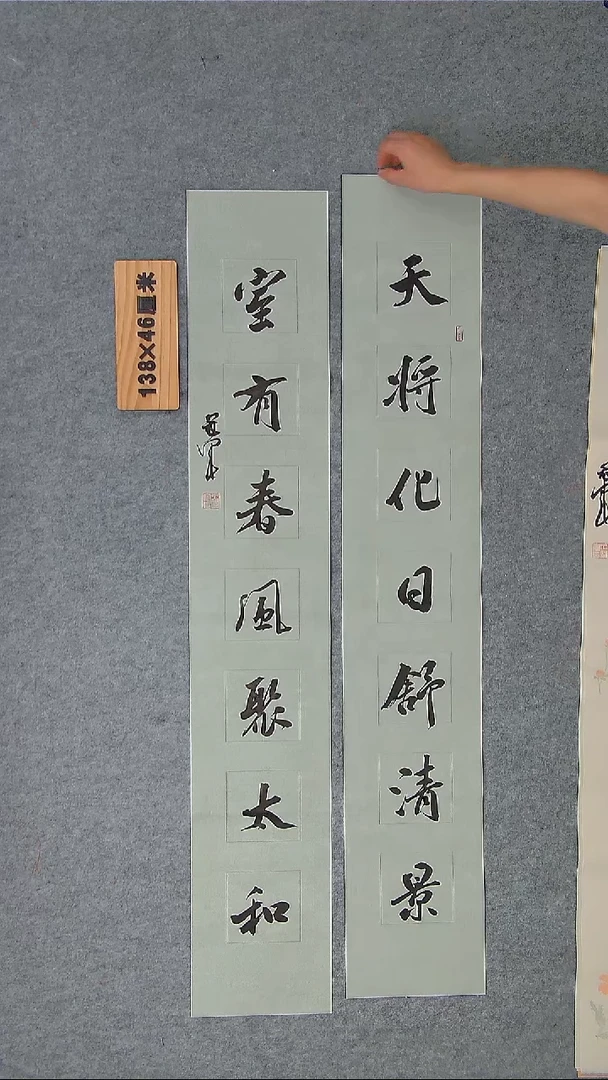 天将化日舒清景
室有春風聚太和
138×46厘米